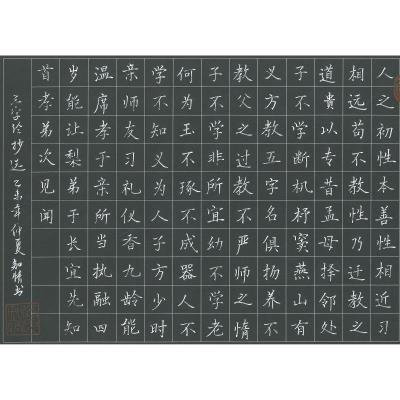 人之初性本善性相近习
相远苟不教性乃迁教之
道贵以专昔孟母择邻处
子不学断机杼窦燕山有
义方教五子名俱扬养不
教父之过教不严师之惰
子不学非所宜幼不学老
何为玉不琢不成器人不
学不知义为人子方少时
亲师友习礼仪香九龄能
温席孝于亲所当执融四
岁能让梨弟于长宜先知
首孝弟次见闻
三字经抄选乙未年仲夏书